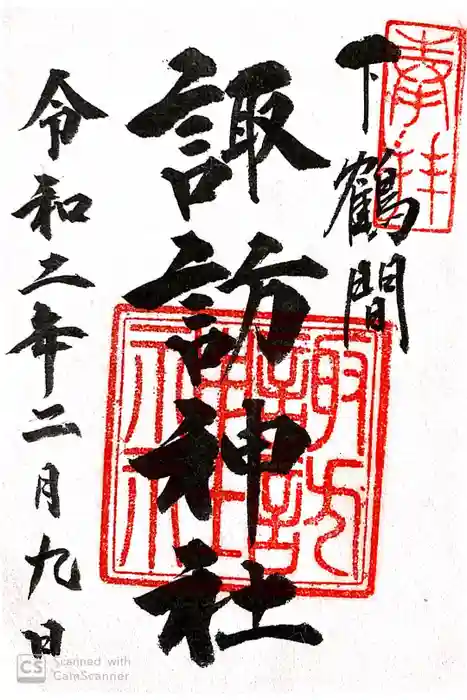 奉拝
下鶴間
諏訪神社
諏訪
神社
令和二年二月九日
CS Scanned with
CamScanner